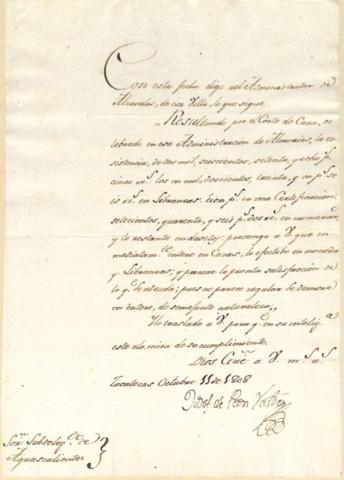 Con esta fecha digo al Administrador de
Alcavalas, de esa Villa, lo que sigue.
"Resultando por el Corte de Caxa, ce-
lebrado en esa Administracion de Alcavalas, la ex-
sistencia, de dos mil, seiscientos, setenta, y ocho p.s
cinco rr.s los un mil, doscientos, treinta, y un p.s se
is rr.s en Libranzas: cien p.s en una Certificacion:
setecientos, quarenta, y seis p.s dos rr.s en numerario
y lo restante en : prevengo a V. que in-
mediatam.te entere en Caxas, lo efectivo en moneda
y Libranzas; y procure la pronta satisfaccion de
lo q.e se adeuda; pues no parece regular se demore
un entero, de semejante naturaleza"
Lo traslado a V. para q.e en su intelig.a
este a la mira de su cumplimiento.
Dios Gue. a V. m.s a.s
Zacatecas Octubre 11 de 1808
Josef de Peon Valdes
Señ.r Subdeleg.do de
Aguascalientes